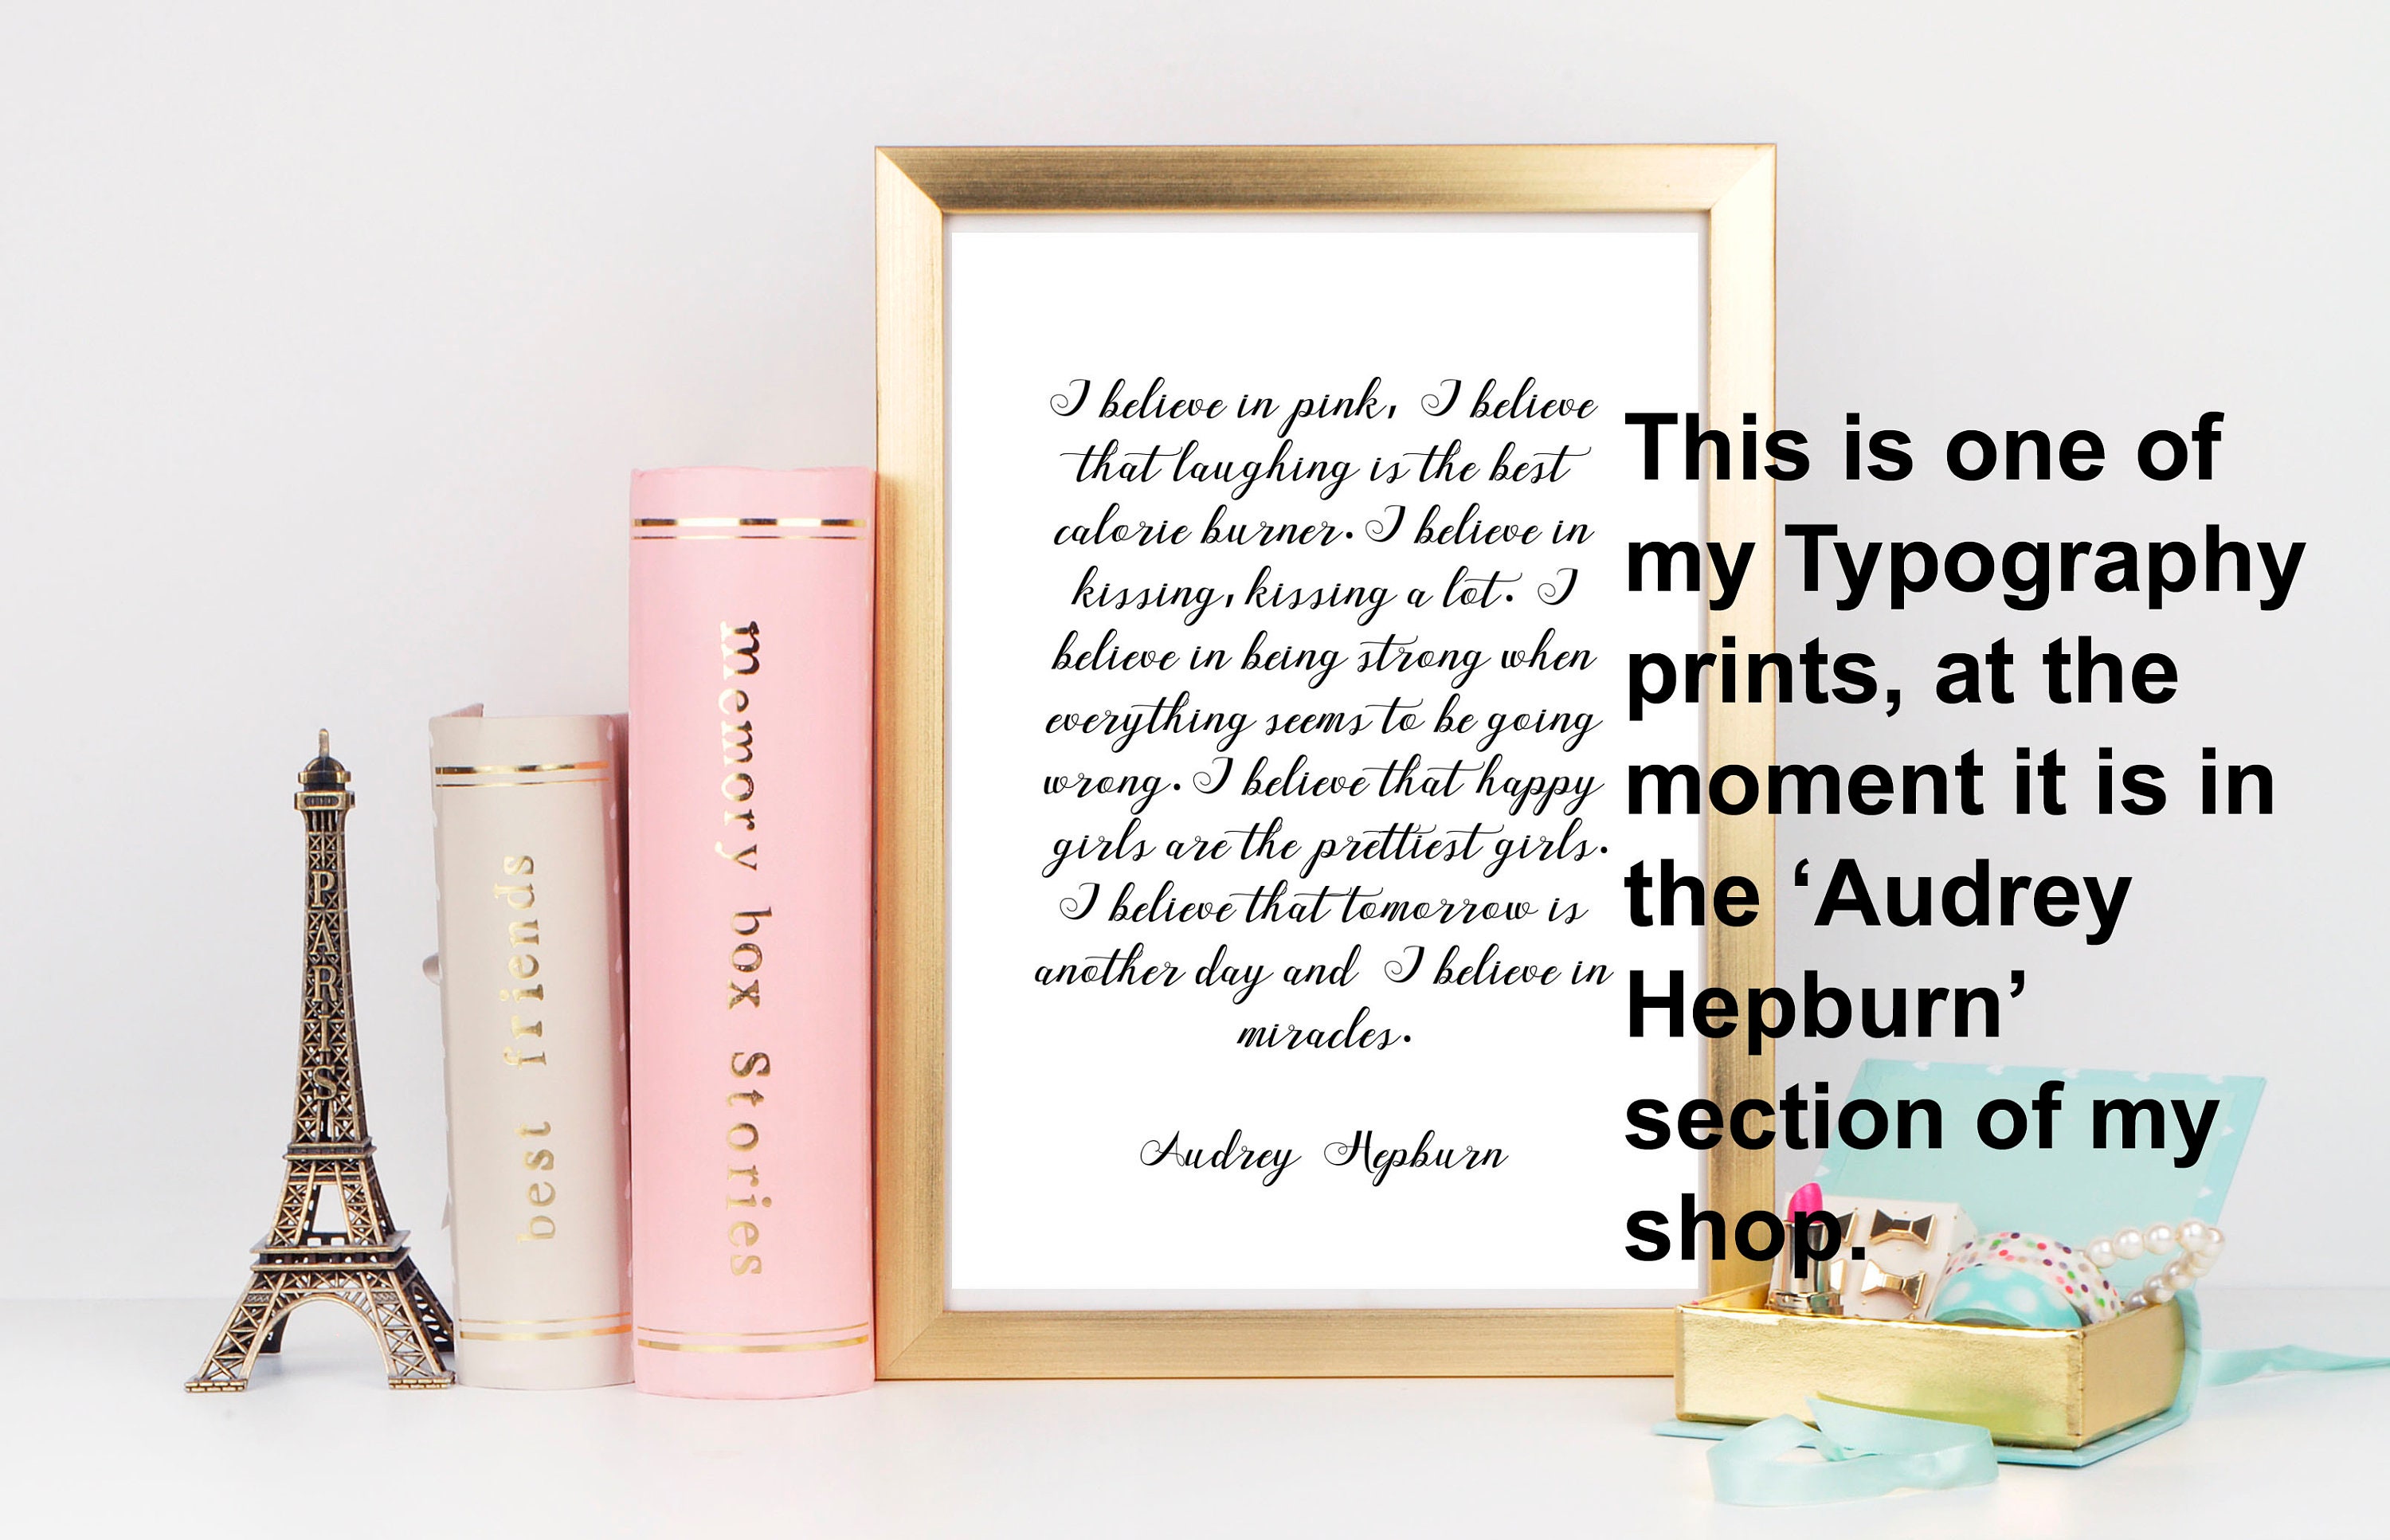 PARIS
best friends
memory box Stories
I believe in pink, I believe
that laughing is the best
calorie burner. I believe in
kissing, kissing a lot. I
believe in being strong when
everything seems to be going
wrong. I believe that happy
girls are the prettiest girls.
I believe that tomorrow is
another day and I believe in
miracles.
Audrey Hepburn
This is one of
my Typography
prints, at the
moment it is in
the ‘Audrey
Hepburn’
section of my
shop.